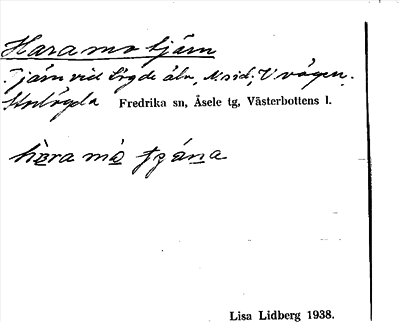 Haramotjärn
Tjärn vid Lögde älv, N sid, V vägen.
Storlögda Fredrika sn, Åsele tg, Västerbottens l.
Lisa Lidberg 1938.